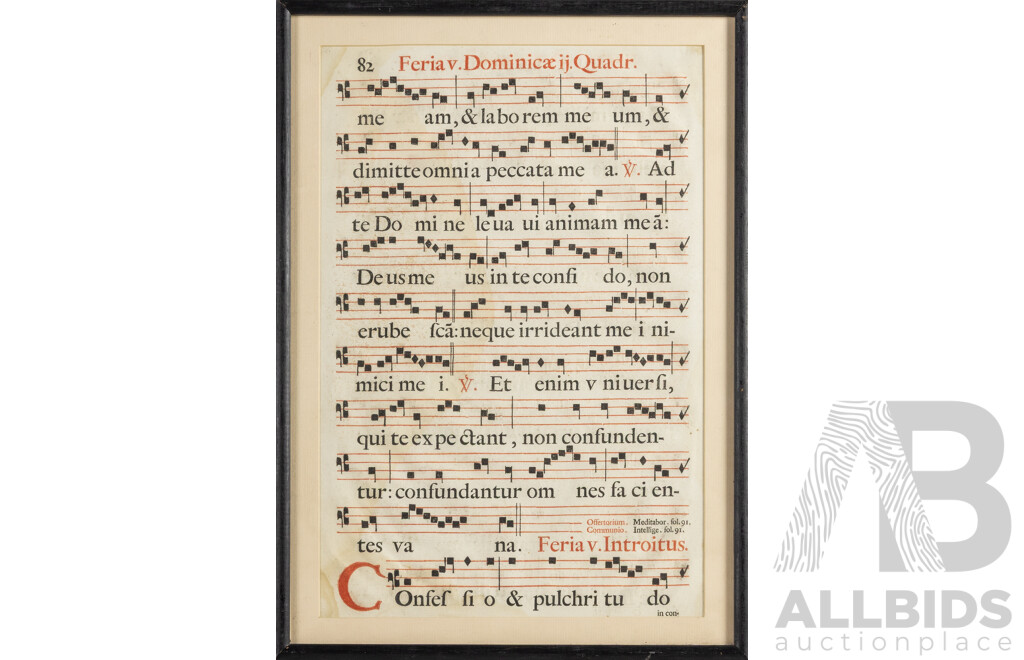 82 Feria v. Dominicæ ij. Quadr.
me am, & laborem me um, &
dimitte omnia peccata me a. ℣. Ad
te Do mi ne leua ui animam meã:
Deus me us in te confi do, non
erube ſcã: neque irrideant me i ni-
mici me i. ℣. Et enim v niuerſi,
qui te expectant, non confunden-
tur: confundantur om nes fa ci en-
Offertorium. Meditabor. fol. 91.
Communio. Intellige. fol. 91.
tes va na. Feria v. Introitus.
COnfeſ ſi o & pulchri tu do
in con-
AB
ALLBIDS
auctionplace